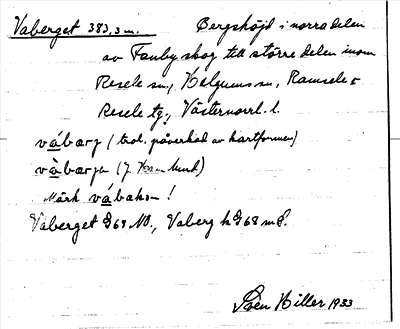 Vaberget 383,3 m. Bergshöjd i norra delen
av Tanby skog till större delen inom
Resele sn, Helgums sn, Ramsele o
Resele tg., Västernorrl. l.
vábærj (trol. påverkad av kartformen)
vàbærjə
Märk vábakən!
Vaberget G69 NO., Vaberg k G68 m
Sven Hiller 1933